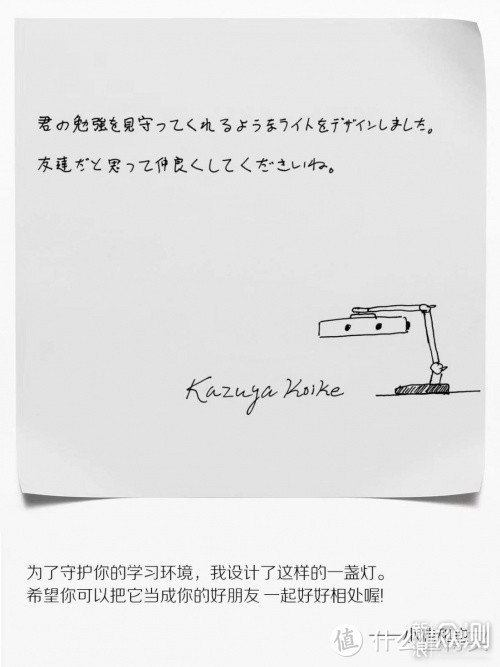 君の勉強を見守ってくれるようなライトをデザインしました。
友達だと思って仲良くしてくださいね。
Kazuya Koike
为了守护你的学习环境，我设计了这样的一盏灯。
希望你可以把它当成你的好朋友 一起好好相处喔!
值 什么值得买